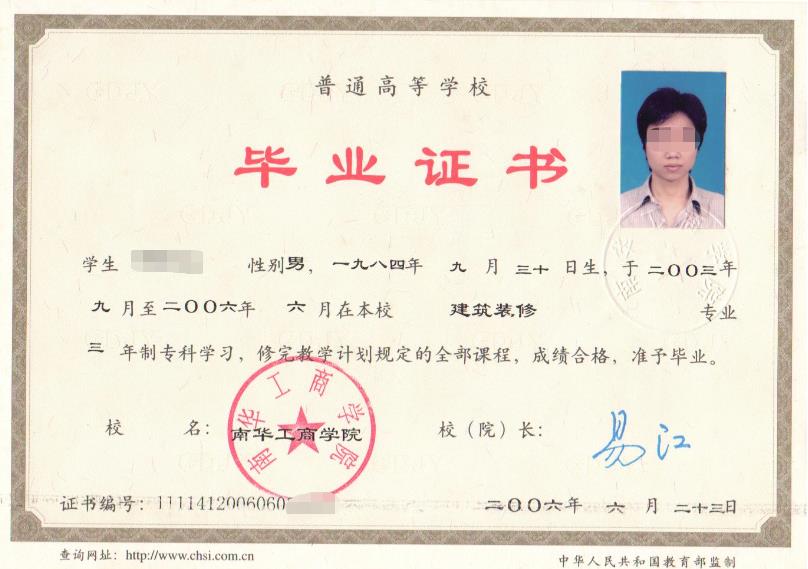 普通高等学校
毕业证书
学生 性别男，一九八四年 九 月 三十 日生，于二〇〇三年
九 月至二〇〇六年 六 月在本校 建筑装修 专业
三 年制专科学习，修完教学计划规定的全部课程，成绩合格，准予毕业。
校 名：南华工商学院 校（院）长：易江
南华工商学院
证书编号：1111412006060 二〇〇六年 六 月 二十三日
查询网址：http://www.chsi.com.cn 中华人民共和国教育部监制